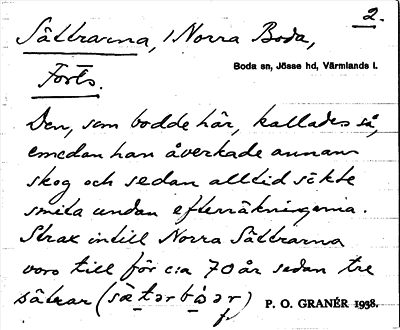 2.
Sättrarna, i Norra Boda,
Boda sn, Jösse hd, Värmlands l.
Forts.
Den, som bodde här, kallades så,
emedan han åverkade annans
skog och sedan alltid sökte
smita undan efterräkningarna.
Strax intill Norra Sättrarna
voro till för c:a 70 år sedan tre
sätrar
P. O. GRANÉR 1938.